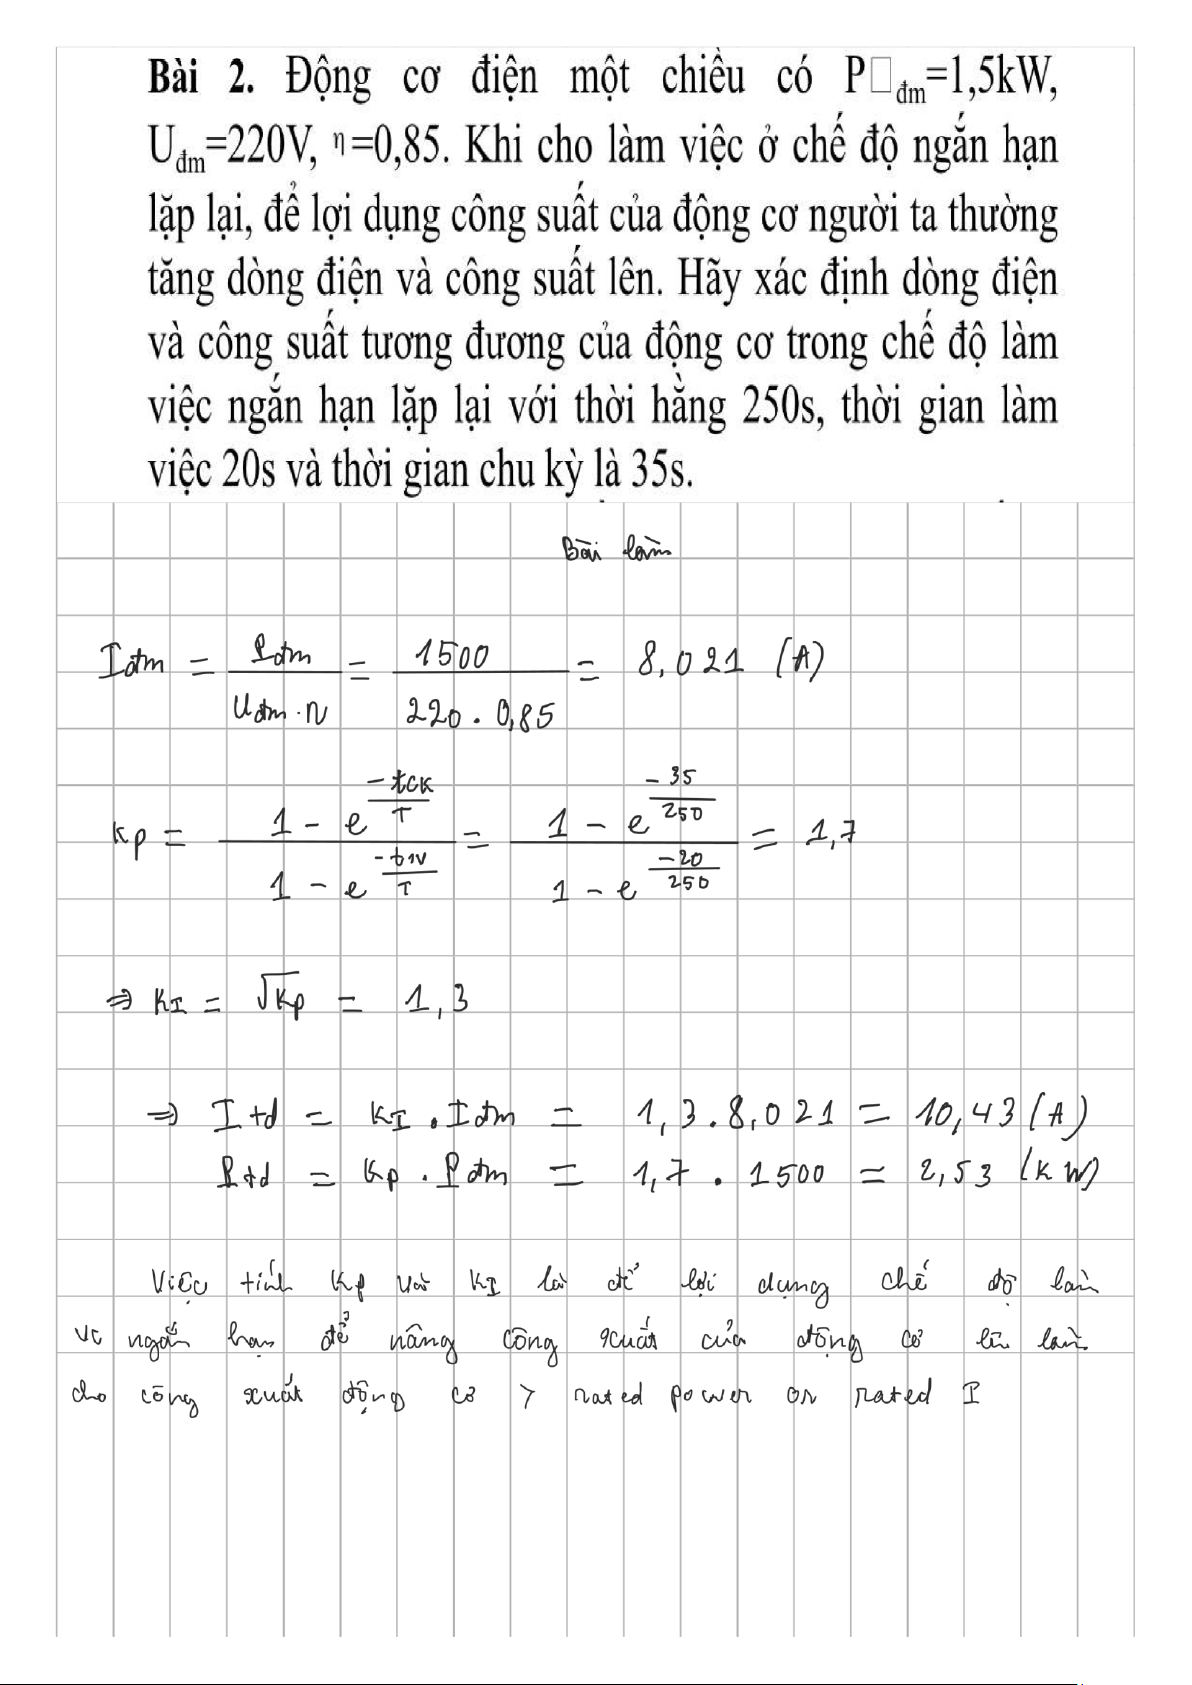 Bài 2. Động cơ điện một chiều có P□đm=1,5kW,
Uđm=220V, η=0,85. Khi cho làm việc ở chế độ ngắn hạn
lặp lại, để lợi dụng công suất của động cơ người ta thường
tăng dòng điện và công suất lên. Hãy xác định dòng điện
và công suất tương đương của động cơ trong chế độ làm
việc ngắn hạn lặp lại với thời hằng 250s, thời gian làm
việc 20s và thời gian chu kỳ là 35s.
Bài làm
Iđm = Pđm / (Uđm . η) = 1500 / (220 . 0,85) = 8,021 (A)
Kp = (1 - e^(-tck/T)) / (1 - e^(-tlv/T)) = (1 - e^(-35/250)) / (1 - e^(-20/250)) = 1,7
⇒ KI = √Kp = 1,3
⇒ Itđ = KI . Iđm = 1,3 . 8,021 = 10,43 (A)
Ptđ = Kp . Pđm = 1,7 . 1500 = 2,53 (KW)
Việc tính Kp và KI là để lợi dụng chế độ làm
vc ngắn hạn để nâng công xuất của động cơ lên làm
cho công xuất động cơ > rated power or rated I